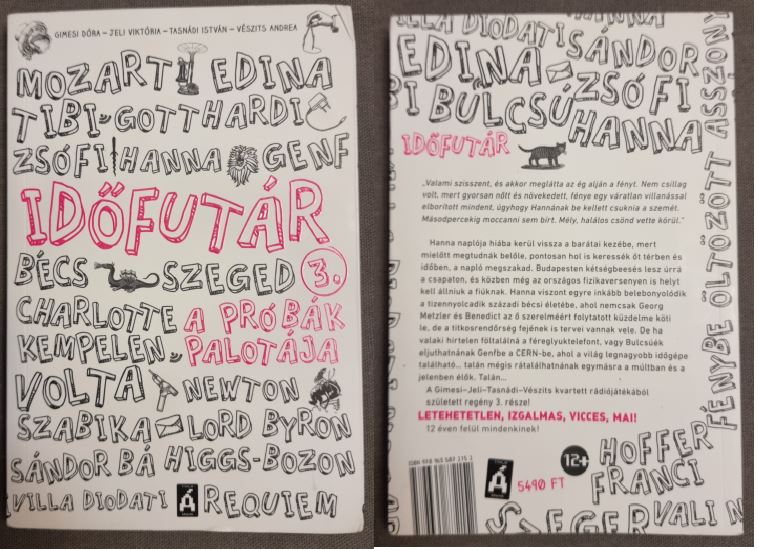 GIMESI DÓRA – JELI VIKTÓRIA – TASNÁDI ISTVÁN – VÉSZITS ANDREA
MOZART EDINA
TIBI GOTTHARDI
ZSÓFI HANNA GENF
IDŐFUTÁR
BÉCS SZEGED 3.
CHARLOTTE A PRÓBÁK
KEMPELEN PALOTÁJA
VOLTA NEWTON
SZABIKA LORD BYRON
SÁNDOR BÁ HIGGS-BOZON
VILLA DIODATI Á REQUIEM
VILLA DIODATI SÁNDOR
EDINA ZSÓFI
BI BULCSÚ HANNA
IDŐFUTÁR
FÉNYBE ÖLTÖZÖTT ASSZONY
„Valami szisszent, és akkor meglátta az ég alján a fényt. Nem csillag
volt, mert gyorsan nőtt és növekedett, fénye egy váratlan villanással
elborított mindent, úgyhogy Hannának be kellett csuknia a szemét.
Másodpercekig moccanni sem bírt. Mély, halálos csönd vette körül.”
Hanna naplója hiába kerül vissza a barátai kezébe, mert
mielőtt megtudnák belőle, pontosan hol is keressék őt térben és
időben, a napló megszakad. Budapesten kétségbeesés lesz úrrá
a csapaton, és közben még az országos fizikaversenyen is helyt
kell állniuk a fiúknak. Hanna viszont egyre inkább belebonyolódik
a tizennyolcadik századi bécsi életébe, ahol nemcsak Georg
Metzler és Benedict az ő szerelméért folytatott küzdelme köti
le, de a titkosrendőrség fejének is tervei vannak vele. De ha
valaki hirtelen föltalálná a féreglyuktelefont, vagy Bulcsúék
eljuthatnának Genfbe a CERN-be, ahol a világ legnagyobb időgépe
található... talán mégis rátalálhatnának egymásra a múltban és a
jelenben élők. Talán...
A Gimesi–Jeli–Tasnádi–Vészits kvartett rádiójátékából
született regény 3. része!
LETEHETETLEN, IZGALMAS, VICCES, MAI!
12 éven felül mindenkinek!
Á 5490 FT 12+
HOFFER
FRANCI
SZEGER VALI N